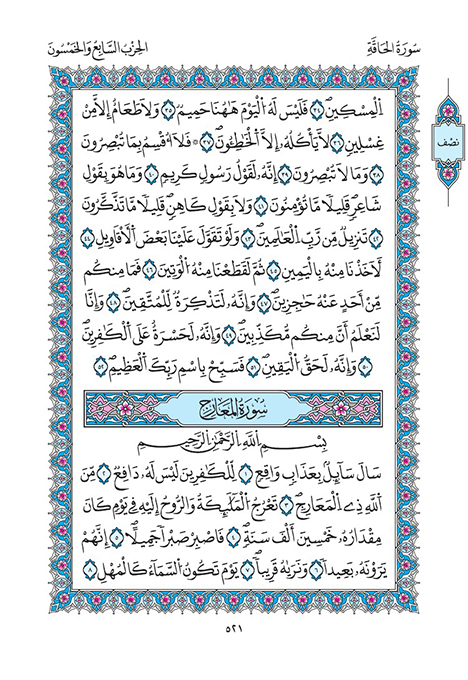 سُورَةُ الحَاقَّةِ
الحِزْبُ السَّابِعُ وَالخَمْسُونَ
نصف
اِلْمِسْكِينِ ٣٤ فَلَيْسَ لَهُ اُلْيَوْمَ هَٰهُنَا حَمِيمٌ ٣٥ وَلَا طَعَامٌ اِلَّا مِنْ
غِسْلِينٍ ٣٦ لَّا يَأْكُلُهُۥ إِلَّا اَلْخَٰطِـُٔونَ ٣٧ ۞ فَلَآ أُقْسِمُ بِمَا تُبْصِرُونَ
٣٨ وَمَا لَا تُبْصِرُونَ ٣٩ إِنَّهُۥ لَقَوْلُ رَسُولٍ كَرِيمٍ ٤٠ وَمَا هُوَ بِقَوْلِ
شَاعِرٍ قَلِيلًا مَّا تُؤْمِنُونَ ٤١ وَلَا بِقَوْلِ كَاهِنٍ قَلِيلًا مَّا تَذَّكَّرُونَ
٤٢ تَنزِيلٌ مِّن رَّبِّ اِلْعَٰلَمِينَ ٤٣ وَلَوْ تَقَوَّلَ عَلَيْنَا بَعْضَ اَلْأَقَاوِيلِ ٤٤
لَأَخَذْنَا مِنْهُ بِالْيَمِينِ ٤٥ ثُمَّ لَقَطَعْنَا مِنْهُ اُلْوَتِينَ ٤٦ فَمَا مِنكُم
مِّنْ أَحَدٍ عَنْهُ حَٰجِزِينَ ٤٧ وَإِنَّهُۥ لَتَذْكِرَةٌ لِّلْمُتَّقِينَ ٤٨ وَإِنَّا
لَنَعْلَمُ أَنَّ مِنكُم مُّكَذِّبِينَ ٤٩ وَإِنَّهُۥ لَحَسْرَةٌ عَلَى اَلْكَٰفِرِينَ
٥٠ وَإِنَّهُۥ لَحَقُّ اُلْيَقِينِ ٥١ فَسَبِّحْ بِاسْمِ رَبِّكَ اَلْعَظِيمِ ٥٢
سُورَةُ المَعَارِجِ
بِسْمِ اللَّهِ الرَّحْمَٰنِ الرَّحِيمِ
سَالَ سَآئِلٌ بِعَذَابٍ وَاقِعٍ ١ لِّلْكَٰفِرِينَ لَيْسَ لَهُۥ دَافِعٌ ٢ مِّنَ
اَللَّهِ ذِي اِلْمَعَارِجِ ٣ تَعْرُجُ اُلْمَلَٰٓئِكَةُ وَالرُّوحُ إِلَيْهِ فِي يَوْمٍ كَانَ
مِقْدَارُهُۥ خَمْسِينَ أَلْفَ سَنَةٍ ٤ فَاصْبِرْ صَبْرًا جَمِيلًا ٥ اِنَّهُمْ
يَرَوْنَهُۥ بَعِيدًا ٦ وَنَرَىٰهُ قَرِيبًا ٧ يَوْمَ تَكُونُ اُلسَّمَآءُ كَالْمُهْلِ ٨
٥٢١